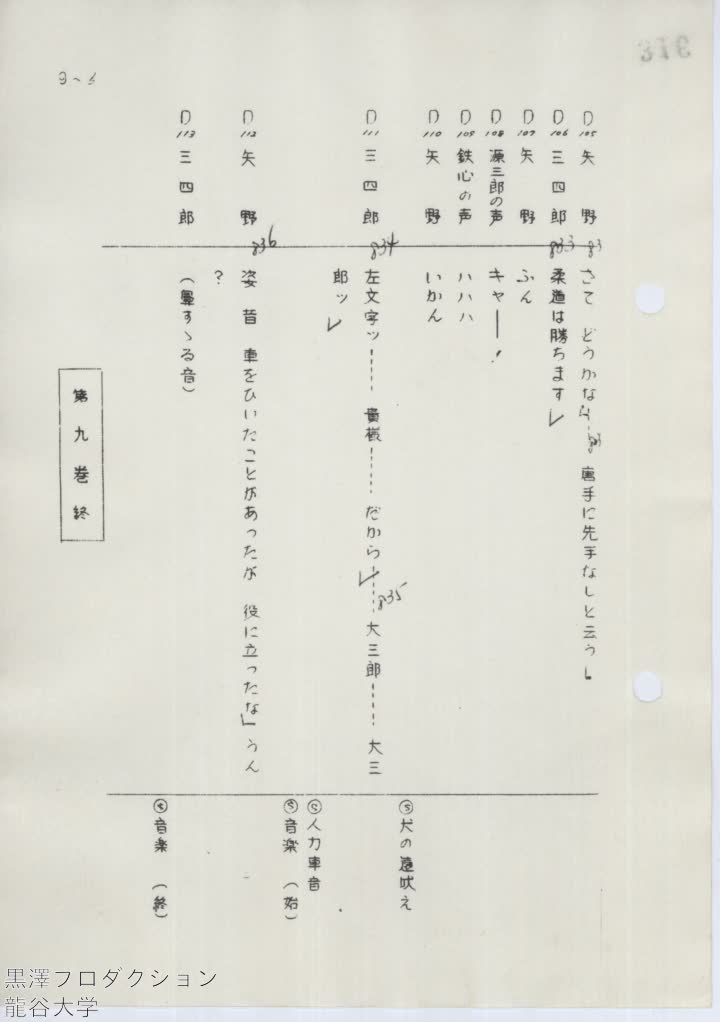 9~5
D105 矢野 さて どうかな…… 唐手に先手なしと云う」
D106 三四郎 柔道は勝ちます
D107 矢野 ふん
D108 源三郎の声 キャー!
D109 鉄心の声 ハハハ
D110 矢野 いかん
Ⓢ犬の遠吠え
D111 三四郎 左文字ッ…… 貴様…… だから…… 大三郎…… 大三
郎ッ
834
835
Ⓢ人力車音
Ⓢ音楽 (始)
D112 矢野 姿 昔 車をひいたことがあったが 役に立ったな」うん
?
836
D113 三四郎 (鼻すゝる音)
Ⓢ音楽 (終)
第九巻終
黒澤プロダクション
龍谷大学